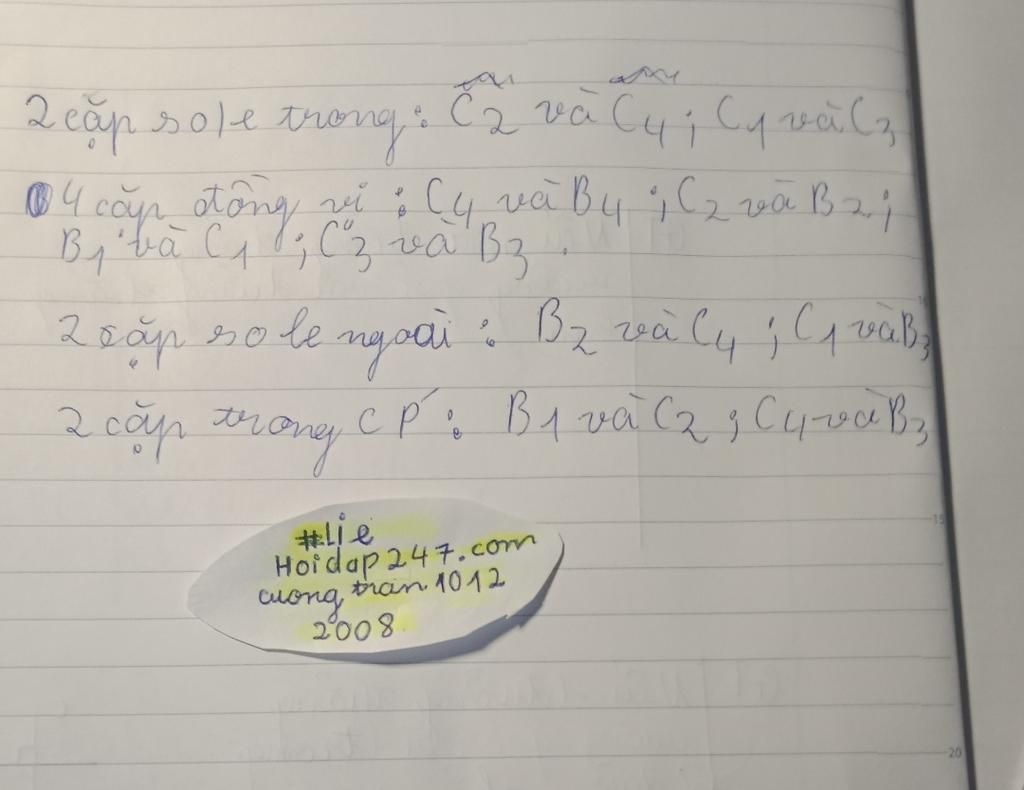 2 cặp so le trong: C2 và C4; C1 và C3
4 cặp đồng vị: C4 và B4; C2 và B2;
B1 và C1; C3 và B3.
2 cặp so le ngoài: B2 và C4; C1 và B3
2 cặp trong CP: B1 và C2; C4 và B3
#Lie
Hoidap247.com
cuong tran 1012
2008
15
20